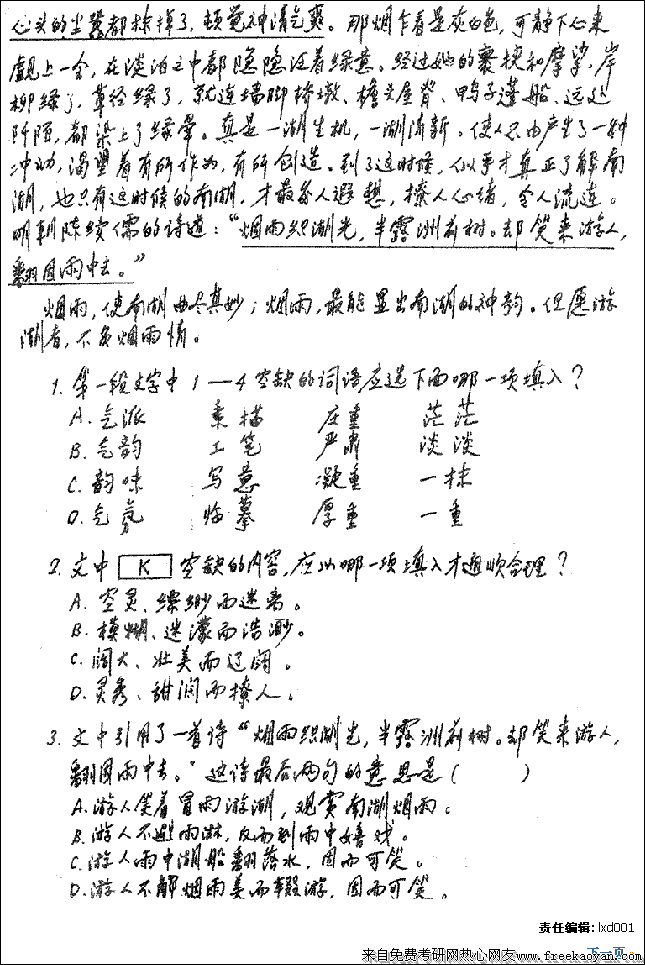 心头的尘埃都抹掉了，顿觉神清气爽。那烟乍看是灰白色，可静下心来
觑上一会，在淡泊之中都隐隐泛着绿意。经过她的裹挟和摩挲，岸
柳绿了，草径绿了，就连墙脚桥墩、檐头屋脊、鸭子蓬船、远处
阡陌，都染上了绿晕。真是一湖生机，一湖清新。使人不由产生了一种
冲动，渴望着有所作为，有所创造。到了这时候，似乎才真正了解南
湖，也只有这时候的南湖，才最备人遐想，撩人心绪，令人流连。
明朝陈续儒的诗道：“烟雨织湖光，半露洲前树。却笑来游人，
翻因雨中去。”
烟雨，使南湖曲尽其妙；烟雨，最能显出南湖的神韵。但愿游
湖者，不负烟雨情。
1. 第一段文字中 1—4 空缺的词语应选下面哪一项填入？
A. 气派 素描 庄重 茫茫
B. 气韵 工笔 严肃 淡淡
C. 韵味 写意 凝重 一抹
D. 气氛 临摹 厚重 一重
2. 文中 K 空缺的内容，应以哪一项填入才通顺合理？
A. 空灵、缥缈而迷离。
B. 模糊、迷濛而浩渺。
C. 阔大、壮美而辽阔。
D. 灵秀、甜润而撩人。
3. 文中引用了一首诗“烟雨织湖光，半露洲前树。却笑来游人，
翻因雨中去。”这诗最后两句的意思是（ ）
A. 游人笑着冒雨游湖，观赏南湖烟雨。
B. 游人不避雨淋，反而到雨中嬉戏。
C. 游人雨中湖船翻落水，因而可笑。
D. 游人不解烟雨美而辍游，因而可笑。
责任编辑: lxd001
下一页
来自免费考研网热心网友www.freekaoyan.com